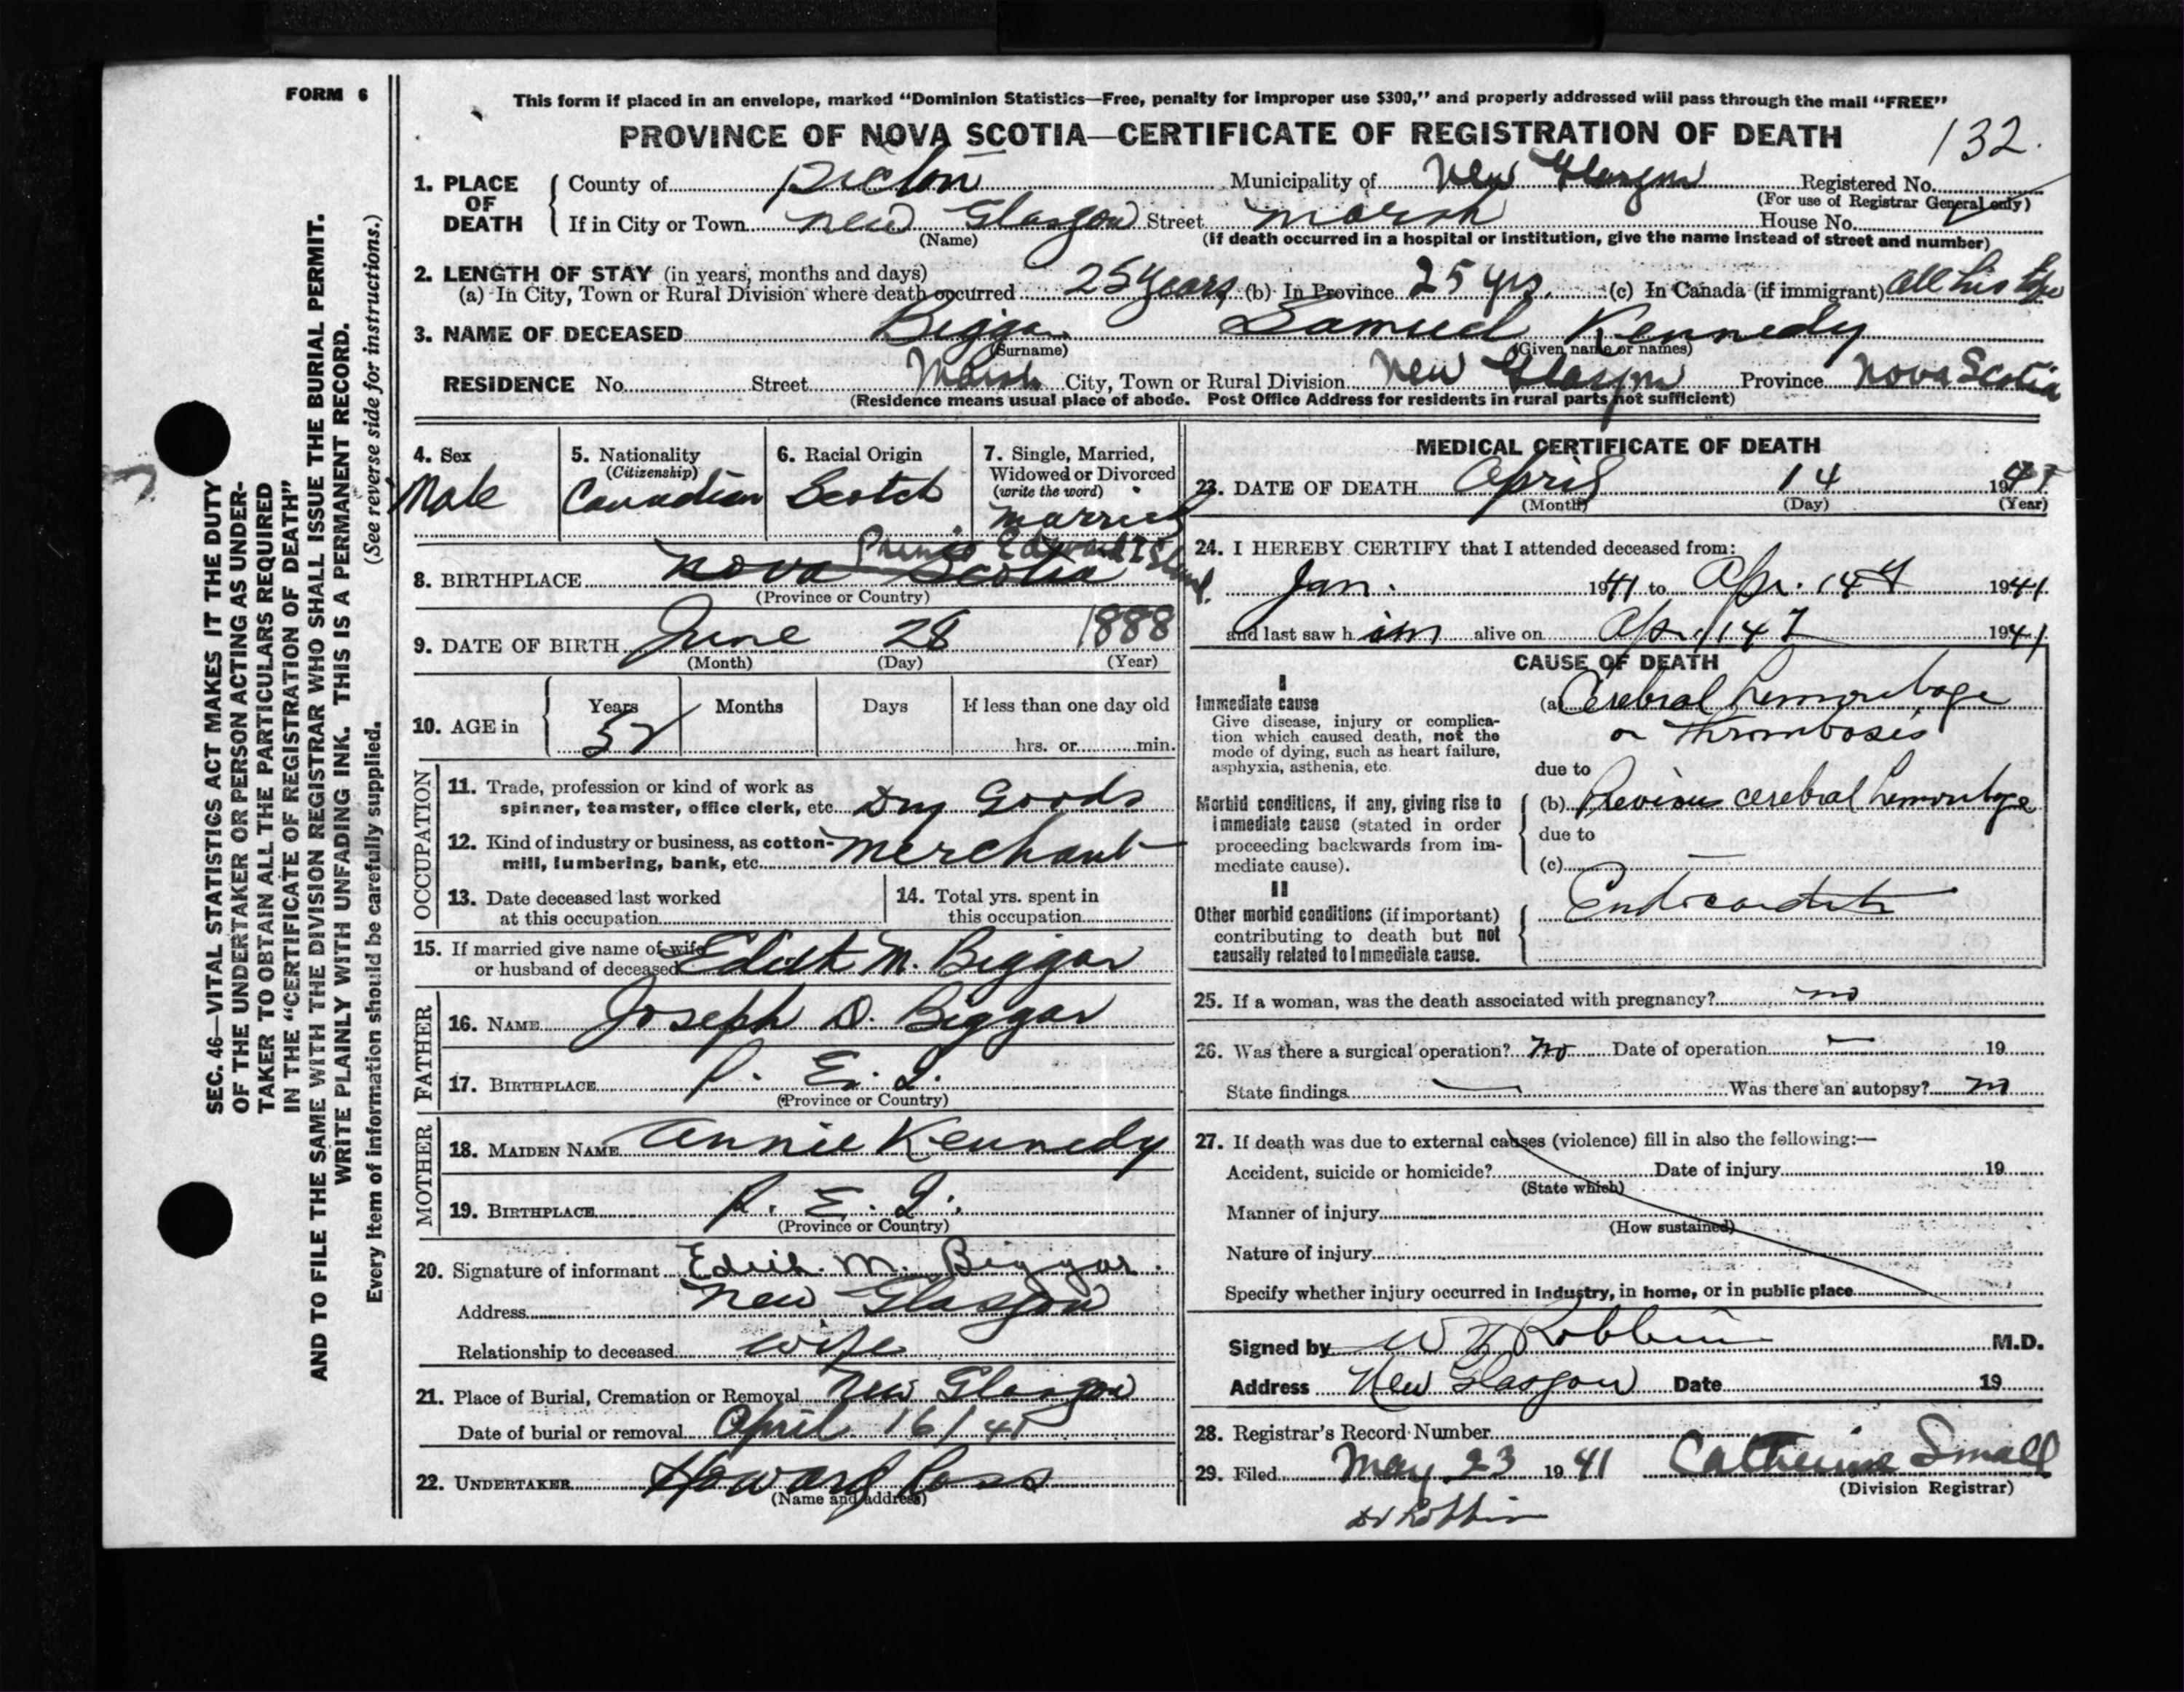 FORM 6
This form if placed in an envelope, marked "Dominion Statistics—Free, penalty for improper use $300," and properly addressed will pass through the mail "FREE"
PROVINCE OF NOVA SCOTIA—CERTIFICATE OF REGISTRATION OF DEATH
132.
1. PLACE OF DEATH
County of Pictou Municipality of New Glasgow Registered No.
(For use of Registrar General only)
If in City or Town New Glasgow Street Marsh House No.
(Name) (If death occurred in a hospital or institution, give the name instead of street and number)
2. LENGTH OF STAY (in years, months and days)
(a) In City, Town or Rural Division where death occurred 25 years (b) In Province 25 yrs. (c) In Canada (if immigrant) all his life
3. NAME OF DECEASED Biggar Samuel Kennedy
(Surname) (Given name or names)
RESIDENCE No. Street Marsh City, Town or Rural Division New Glasgow Province Nova Scotia
(Residence means usual place of abode. Post Office Address for residents in rural parts not sufficient)
4. Sex
Male
5. Nationality
(Citizenship)
Canadian
6. Racial Origin
Scotch
7. Single, Married,
Widowed or Divorced
(write the word)
married
Prince Edward Island
8. BIRTHPLACE Nova Scotia
(Province or Country)
9. DATE OF BIRTH June 28 1888
(Month) (Day) (Year)
10. AGE in
Years Months Days If less than one day old
52 hrs. or min.
OCCUPATION
11. Trade, profession or kind of work as
spinner, teamster, office clerk, etc. Dry Goods
12. Kind of industry or business, as cotton-
mill, lumbering, bank, etc. Merchant
13. Date deceased last worked
at this occupation
14. Total yrs. spent in
this occupation
15. If married give name of wife
or husband of deceased Edith M. Biggar
FATHER
16. NAME Joseph D. Biggar
17. BIRTHPLACE P. E. I.
(Province or Country)
MOTHER
18. MAIDEN NAME Annie Kennedy
19. BIRTHPLACE P. E. I.
(Province or Country)
20. Signature of informant Edith. M. Biggar.
Address New Glasgow
Relationship to deceased wife
21. Place of Burial, Cremation or Removal New Glasgow
Date of burial or removal April 16/41
22. UNDERTAKER Howard Ross
(Name and address)
MEDICAL CERTIFICATE OF DEATH
23. DATE OF DEATH April 14 1941
(Month) (Day) (Year)
24. I HEREBY CERTIFY that I attended deceased from:
Jan. 1941 to Apr. 14 1941
and last saw him alive on Apr. 14 1941
CAUSE OF DEATH
I
Immediate cause
Give disease, injury or complica-
tion which caused death, not the
mode of dying, such as heart failure,
asphyxia, asthenia, etc.
(a) Cerebral hemorrhage
or thrombosis
due to
Morbid conditions, if any, giving rise to
immediate cause (stated in order
proceeding backwards from im-
mediate cause).
(b) Previous cerebral hemorrhage
due to
(c)
II
Other morbid conditions (if important)
contributing to death but not
causally related to immediate cause.
Endocarditis
25. If a woman, was the death associated with pregnancy? no
26. Was there a surgical operation? no Date of operation — 19
State findings — Was there an autopsy? no
27. If death was due to external causes (violence) fill in also the following:—
Accident, suicide or homicide? Date of injury 19
(State which)
Manner of injury
(How sustained)
Nature of injury
Specify whether injury occurred in industry, in home, or in public place
Signed by Robbins M.D.
Address New Glasgow Date 19
28. Registrar's Record Number
29. Filed May 23 1941 Catherine Small
(Division Registrar)
Dr Robbins
SEC. 46—VITAL STATISTICS ACT MAKES IT THE DUTY
OF THE UNDERTAKER OR PERSON ACTING AS UNDER-
TAKER TO OBTAIN ALL THE PARTICULARS REQUIRED
IN THE "CERTIFICATE OF REGISTRATION OF DEATH"
AND TO FILE THE SAME WITH THE DIVISION REGISTRAR WHO SHALL ISSUE THE BURIAL PERMIT.
WRITE PLAINLY WITH UNFADING INK. THIS IS A PERMANENT RECORD.
Every item of information should be carefully supplied. (See reverse side for instructions.)